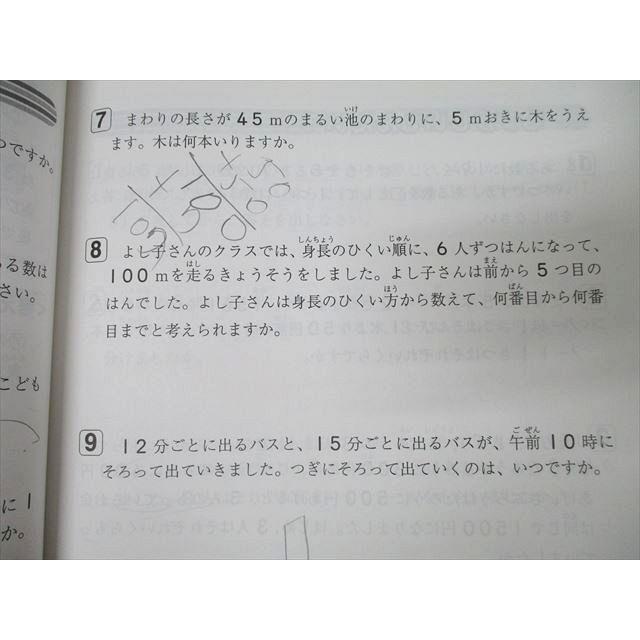 7 まわりの長さが45mのまるい池のまわりに、5mおきに木をうえ
ます。木は何本いりますか。
8 よし子さんのクラスでは、身長のひくい順に、6人ずつはんになって、
100mを走るきょうそうをしました。よし子さんは前から5つ目の
はんでした。よし子さんは身長のひくい方から数えて、何番目から何番
目までと考えられますか。
9 12分ごとに出るバスと、15分ごとに出るバスが、午前10時に
そろって出ていきました。つぎにそろって出ていくのは、いつですか。
つですか。
る数は
さい。
こども
に1
か。